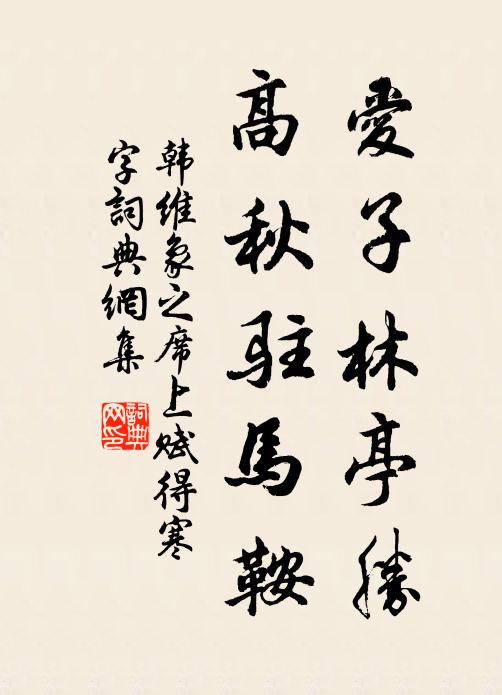 愛子林亭勝
高秋駐馬鞍
韩維象之席上赋得寒
字詞典網集
詞典网印